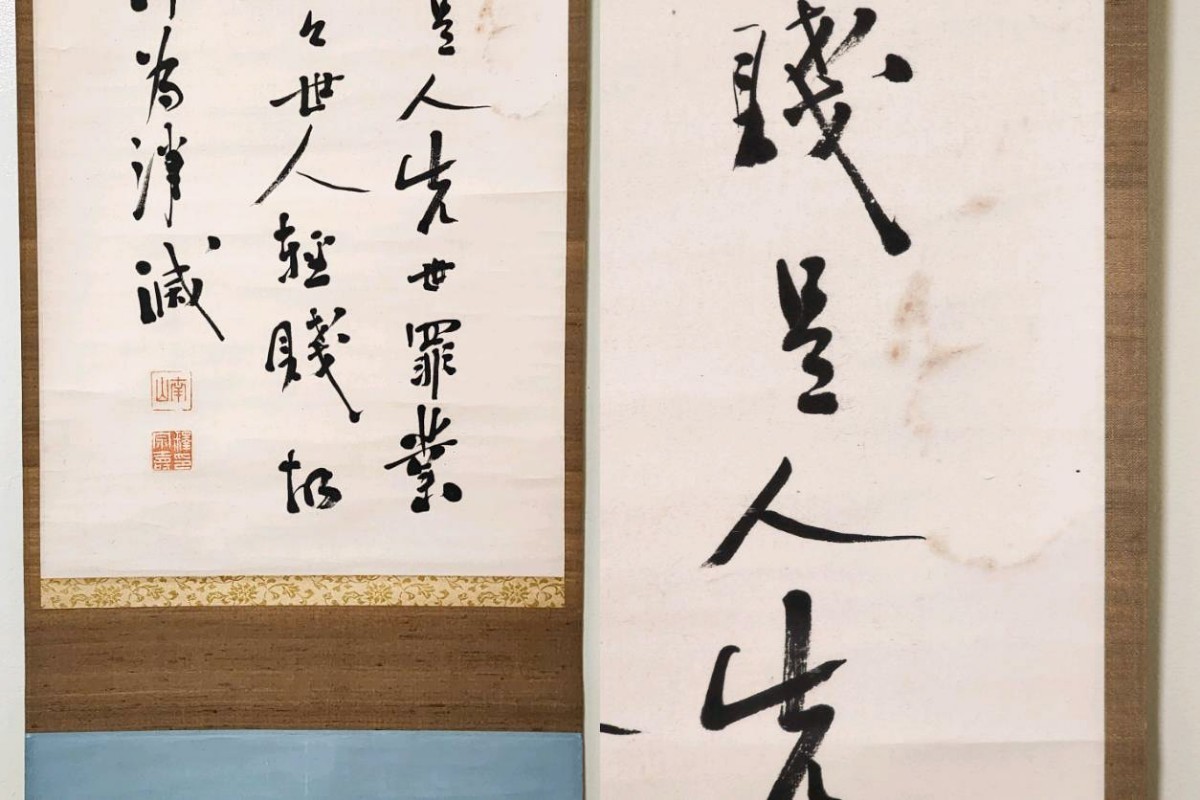 是人先世罪業
今世人輕賤故
為消滅
南山
賤是人先